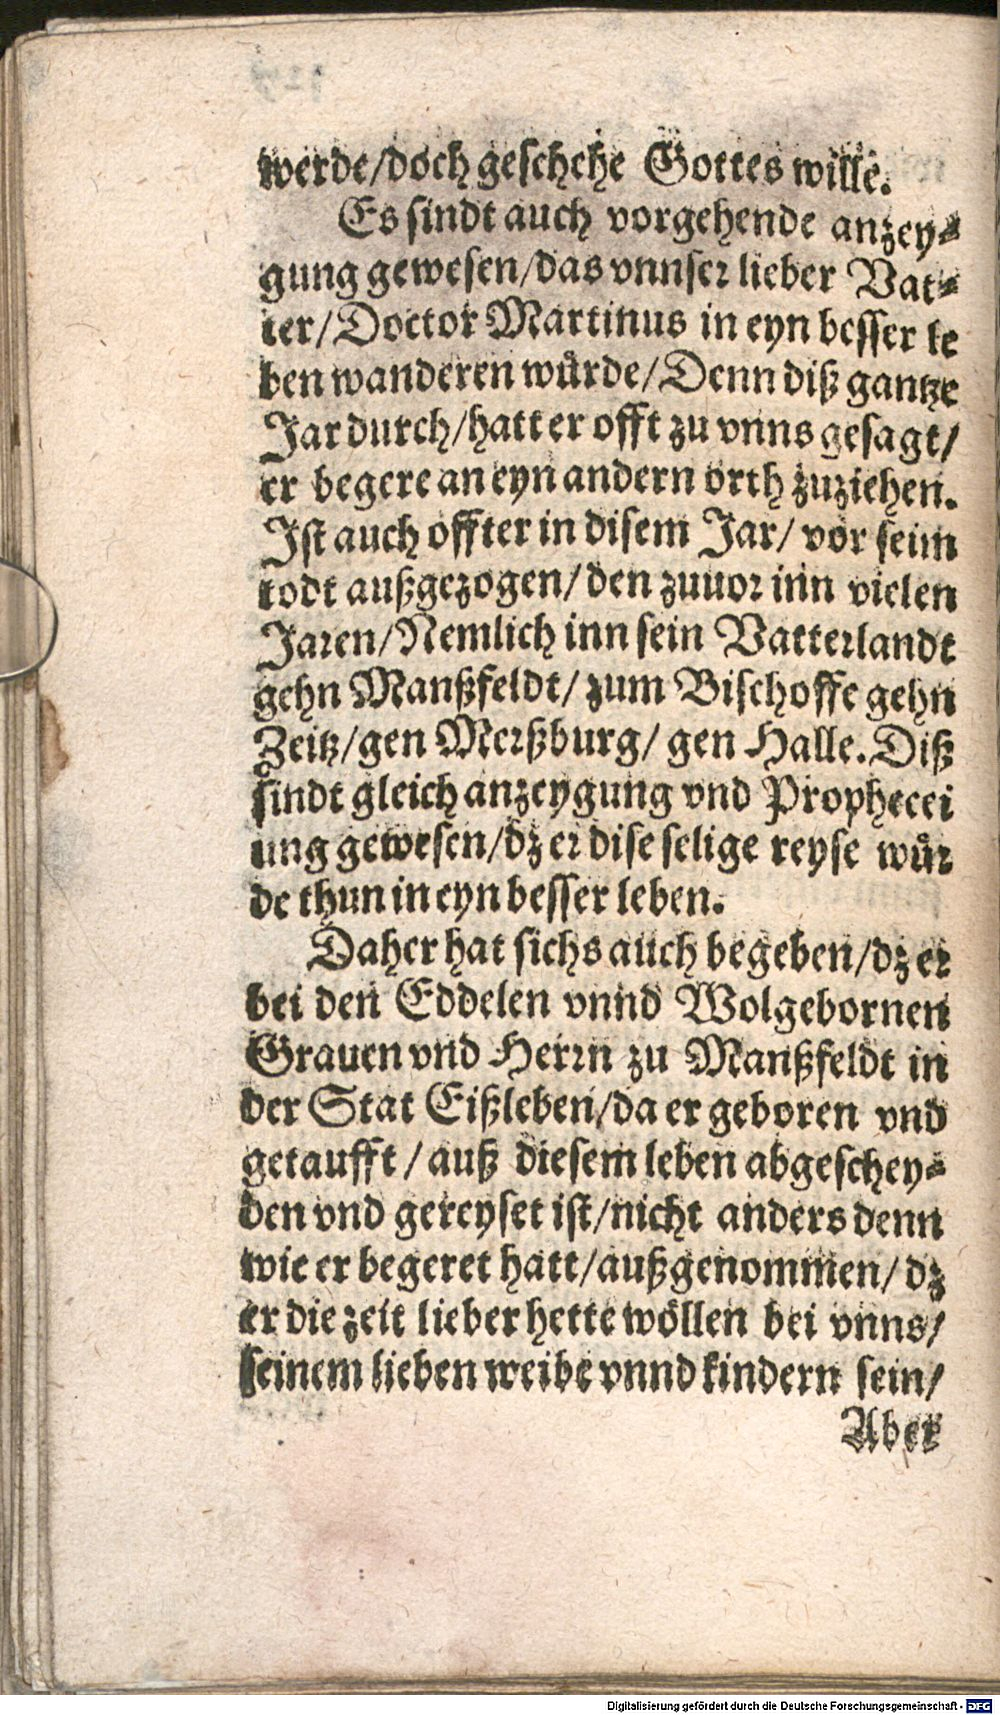 werde/doch geschehe Gottes wille.
Es sindt auch vorgehende anzey⸗
gung gewesen/das vnnser lieber Vat⸗
ter/Doctor Martinus in eyn besser le
ben wanderen wuͤrde/Denn diß gantze
Jar durch/hatt er offt zu vnns gesagt/
er begere an eyn andern orth zuziehen.
Ist auch offter in disem Jar/ vor seim
todt außgezogen/den zuuor inn vielen
Jaren/Nemlich inn sein Vatterlandt
gehn Manßfeldt/ zum Bischoffe gehn
Zeitz/gen Merßburg/ gen Halle. Diß
sindt gleich anzeygung vnd Prophecei
ung gewesen/dz er dise selige reyse wuͤr
de thun in eyn besser leben.
Daher hat sichs auch begeben/dz er
bei den Eddelen vnnd Wolgebornen
Grauen vnd Herrn zu Manßfeldt in
der Stat Eißleben/da er geboren vnd
getaufft / auß diesem leben abgeschey⸗
den vnd gereyset ist/nicht anders denn
wie er begeret hatt/außgenommen/ dz
er die zeit lieber hette woͤllen bei vnns/
seinem lieben weibe vnnd kindern sein/
Aber
Digitalisierung gefördert durch die Deutsche Forschungsgemeinschaft - DFG